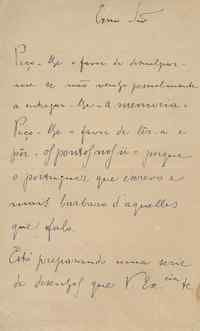 Exmo Snr
Peço-lhe o favor de desculpar-
me se não venho pessoalmente
a entregar-lhe a memoria.
Peço-lhe o favor de lêr-a e
pôr os pontos nos ii porque
o portuguez que escrevo e
mais barbaro d'aquelles
que falo.
Está preparando uma serie
de desenhos que V Ex.cia